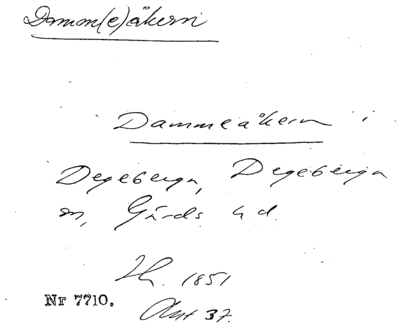 Damm(e)åkern
Dammeåkern i
Degeberga, Degeberga
sn, Gärds hd.
1851
Nr 7710.
Akt 37.